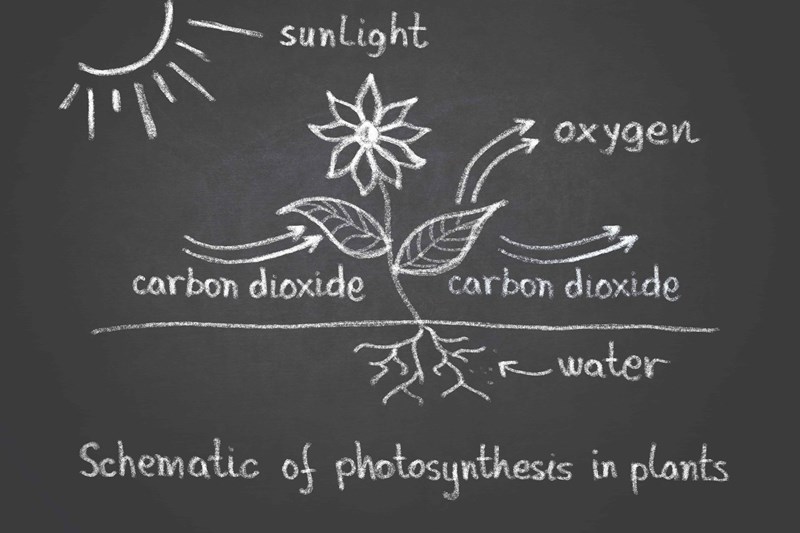 sunlight
oxygen
carbon dioxide
carbon dioxide
water
Schematic of photosynthesis in plants